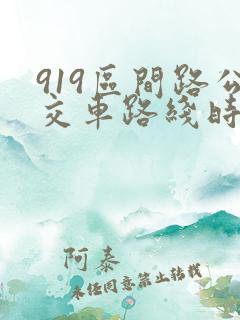 919區間路公
交車路綫時
阿泰
未经同意禁止转载